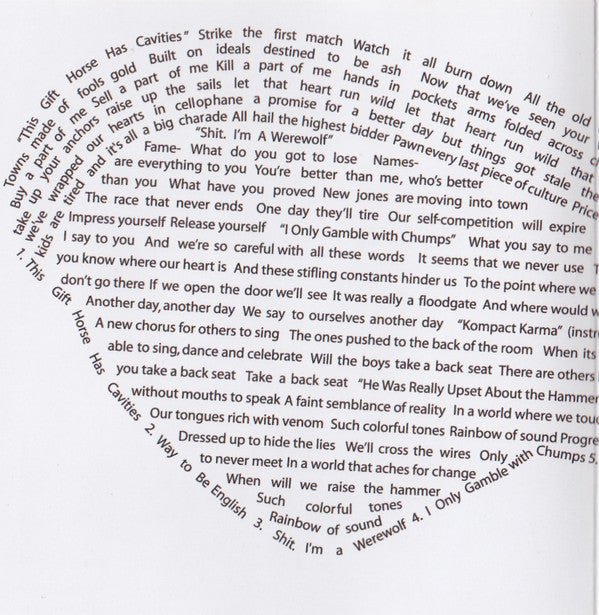 "This Gift Horse Has Cavities" Strike the first match Watch it all burn down All the old
Towns made of fools gold Built on ideals destined to be ash Now that we've seen your
Buy a part of me Sell a part of me Kill a part of me hands in pockets arms folded across
take up your anchors raise up the sails let that heart run wild let that heart run wild that
we've wrapped our hearts in cellophane a promise for a better day but things got stale the
kids are tired and it's all a big charade All hail the highest bidder Pawn every last piece of culture Price
"Shit. I'm A Werewolf"
Fame- What do you got to lose Names-
are everything to you You're better than me, who's better
than you What have you proved New jones are moving into town
The race that never ends One day they'll tire Our self-competition will expire
Impress yourself Release yourself "I Only Gamble with Chumps" What you say to me
I say to you And we're so careful with all these words It seems that we never use
you know where our heart is And these stifling constants hinder us To the point where we
don't go there If we open the door we'll see It was really a floodgate And where would w
Another day, another day We say to ourselves another day "Kompact Karma" (instr
A new chorus for others to sing The ones pushed to the back of the room When its
able to sing, dance and celebrate Will the boys take a back seat There are others
you take a back seat Take a back seat "He Was Really Upset About the Hammer
without mouths to speak A faint semblance of reality In a world where we touc
Our tongues rich with venom Such colorful tones Rainbow of sound Progre
Dressed up to hide the lies We'll cross the wires Only
to never meet In a world that aches for change
When will we raise the hammer
Such colorful tones
Rainbow of sound
1. This Gift Horse Has Cavities 2. Way to Be English 3. Shit. I'm a Werewolf 4. I Only Gamble with Chumps 5.